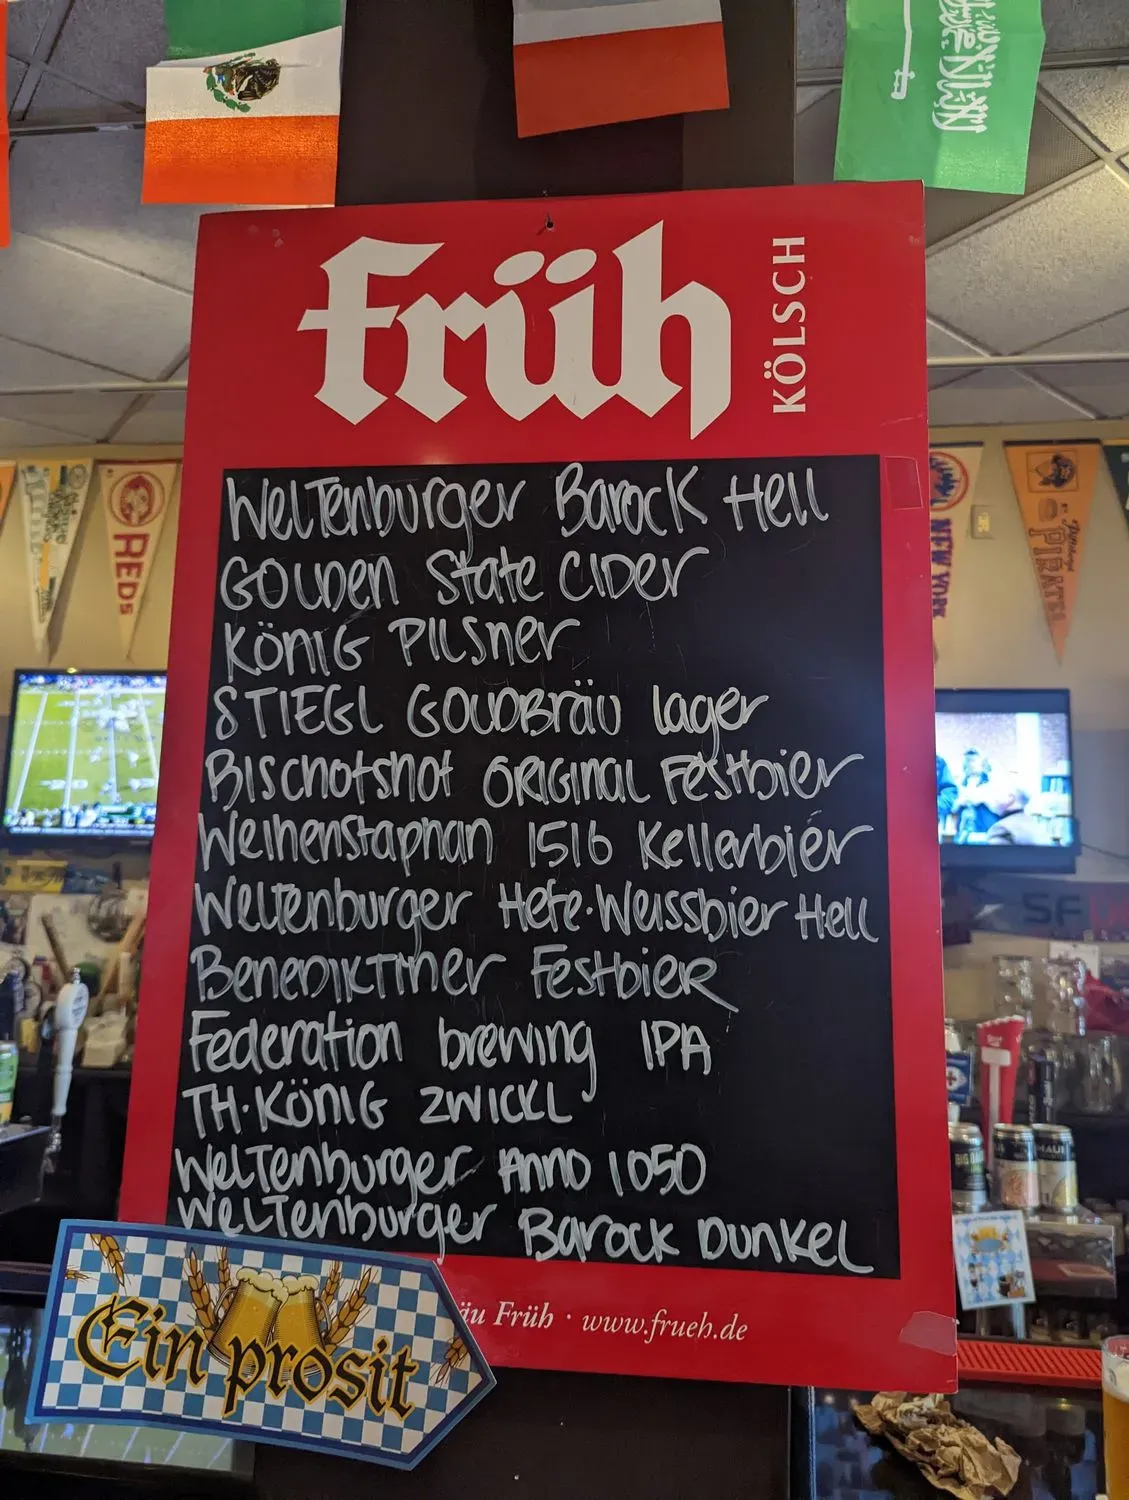 früh
KÖLSCH
Weltenburger Barock Hell
Golden State Cider
König Pilsner
STIEGL Goldbräu lager
Bischofshof Original Festbier
Weihenstaphan 1516 Kellerbier
Weltenburger Hefe-Weissbier Hell
Benediktiner Festbier
Federation brewing IPA
TH. König Zwickl
Weltenburger Anno 1050
Weltenburger Barock Dunkel
äu Früh · www.frueh.de
Ein prosit
REDS
NEW YORK
Pittsburgh
PIRATES
SF
BIG
MAUI